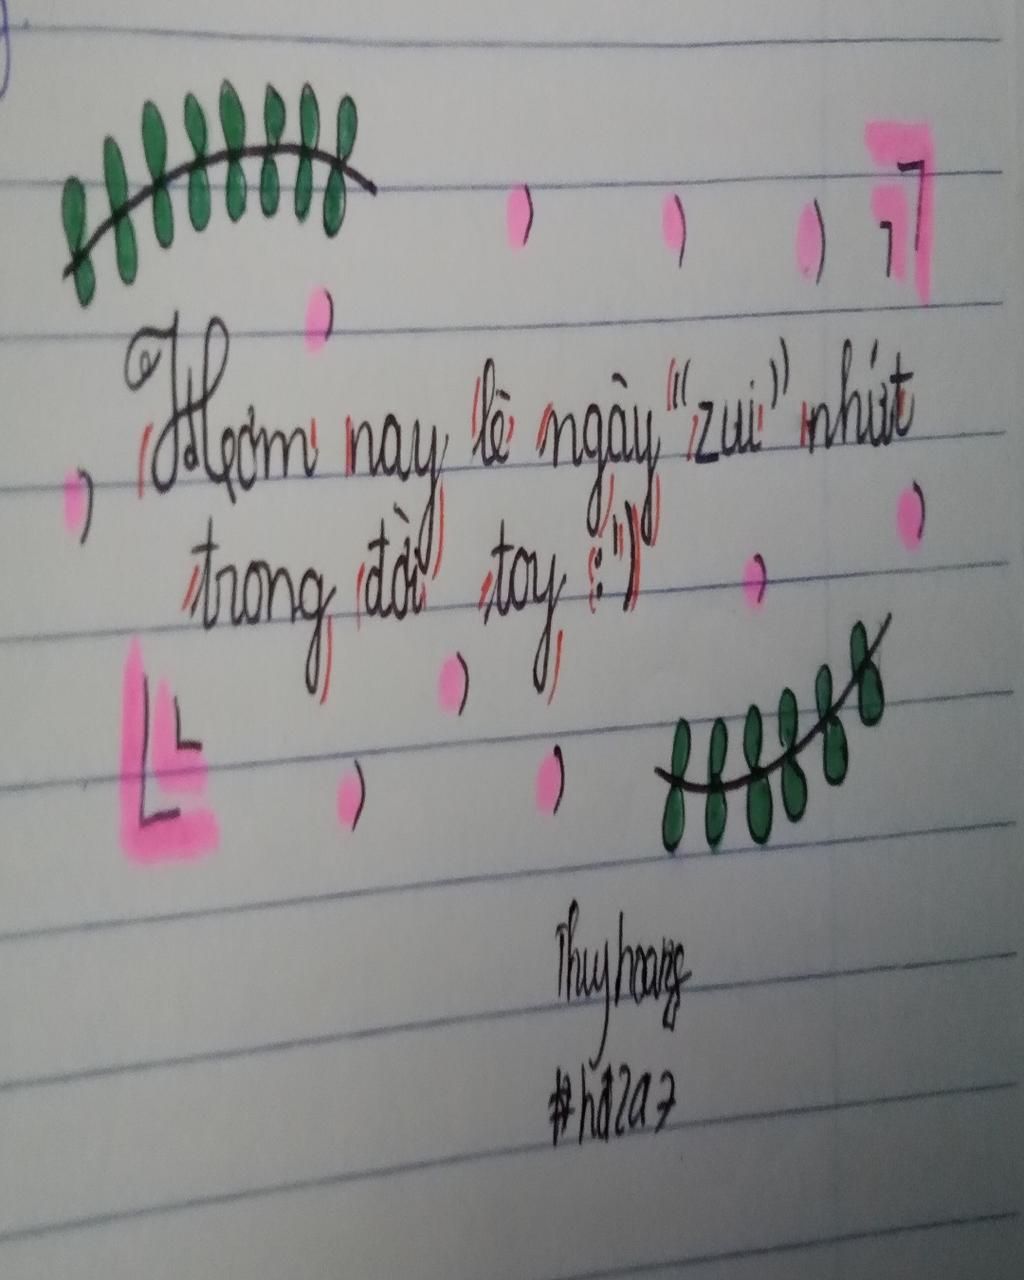 Hợm nay lè ngày "zui" nhứt
trong đời toy :")
Thuyhoang
#hd2a7